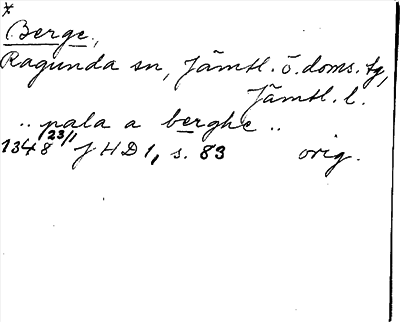 *
Berge,
Ragunda sn, Jämtl. ö. doms. tg,
Jämtl. l.
.. pala a berghe ..
1348 23/1 JHD 1, s. 83 orig.